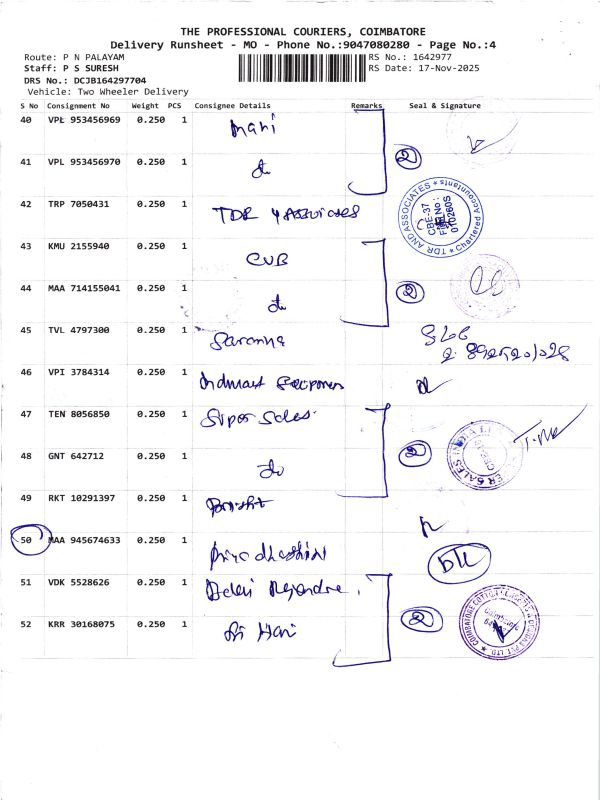 THE PROFESSIONAL COURIERS, COIMBATORE
Delivery Runsheet - MO - Phone No.:9047080280 - Page No.:4
Route: P N PALAYAM
RS No.: 1642977
Staff: P S SURESH
RS Date: 17-Nov-2025
DRS No.: DCJB164297704
Vehicle: Two Wheeler Delivery
S No Consignment No Weight PCS Consignee Details Remarks Seal & Signature
40 VPL 953456969 0.250 1 Mani
2
41 VPL 953456970 0.250 1 do
42 TRP 7050431 0.250 1 TDR
TDR AND ASSOCIATES * Chartered Accountants *
CBE-37
F No:
010260S
43 KMU 2155940 0.250 1 CUB
2
44 MAA 714155041 0.250 1 do
45 TVL 4797300 0.250 1 Saranya
46 VPI 3784314 0.250 1
47 TEN 8056850 0.250 1 Super Sales
2
48 GNT 642712 0.250 1 do
49 RKT 10291397 0.250 1
50 MAA 945674633 0.250 1 Priyadharshini
51 VDK 5528626 0.250 1
2
52 KRR 30168075 0.250 1 Sri Hari